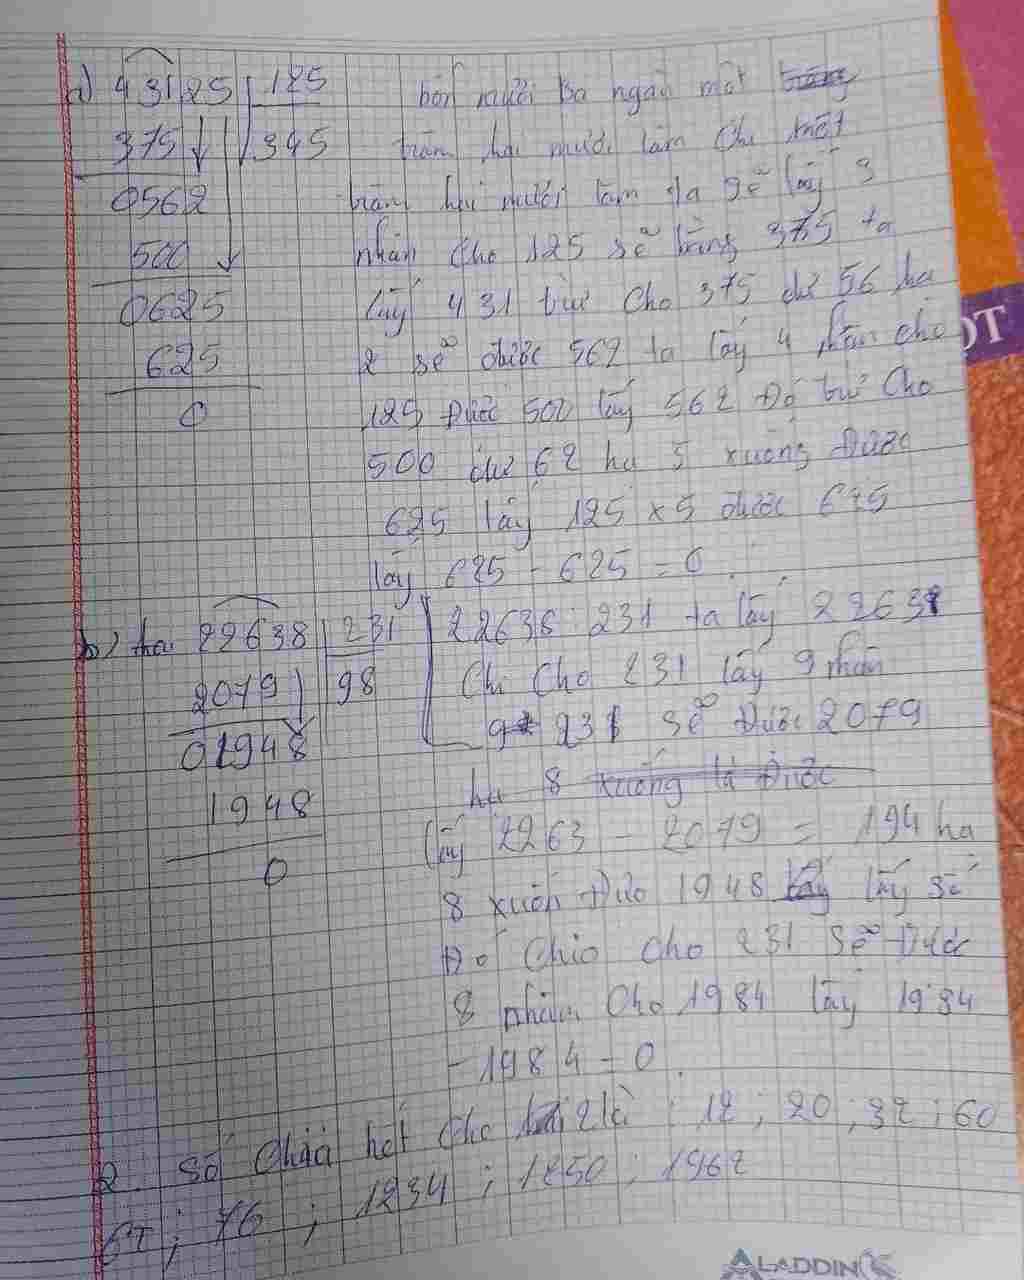 a) 43125 125 bốn mươi ba ngàn một
375 345 trăm hai mươi lăm Chi một
0562 trăm hai mươi lăm ta sẽ lấy 3
500 nhân cho 125 sẽ bằng 375 ta
0625 lấy 431 trừ cho 375 dư 56 hạ
625 2 sẽ được 562 ta lấy 4 nhân cho
0 125 Được 500 lấy 562 Đó trừ Cho
500 dư 62 hạ 5 xuống Được
625 lấy 125 x 5 được 625
lấy 625 - 625 = 0
b) 22638 231 22638 : 231 ta lấy 2263
2079 98 Chi Cho 231 lấy 9 nhân
01948 9 231 sẽ Được 2079
hạ 8 xuống là Được
1948 lấy 2263 - 2079 = 194 hạ
0 8 xuốn Đươ 1948 lấy số
Đó Chio cho 231 Sẽ Được
8 nhân Cho 1984 lấy 1984
- 1984 = 0
2. Số Chia hết Cho 2 là : 12 ; 20 ; 32 ; 60
; 76 ; 1234 ; 1250 ; 1962
ALADDIN
OT